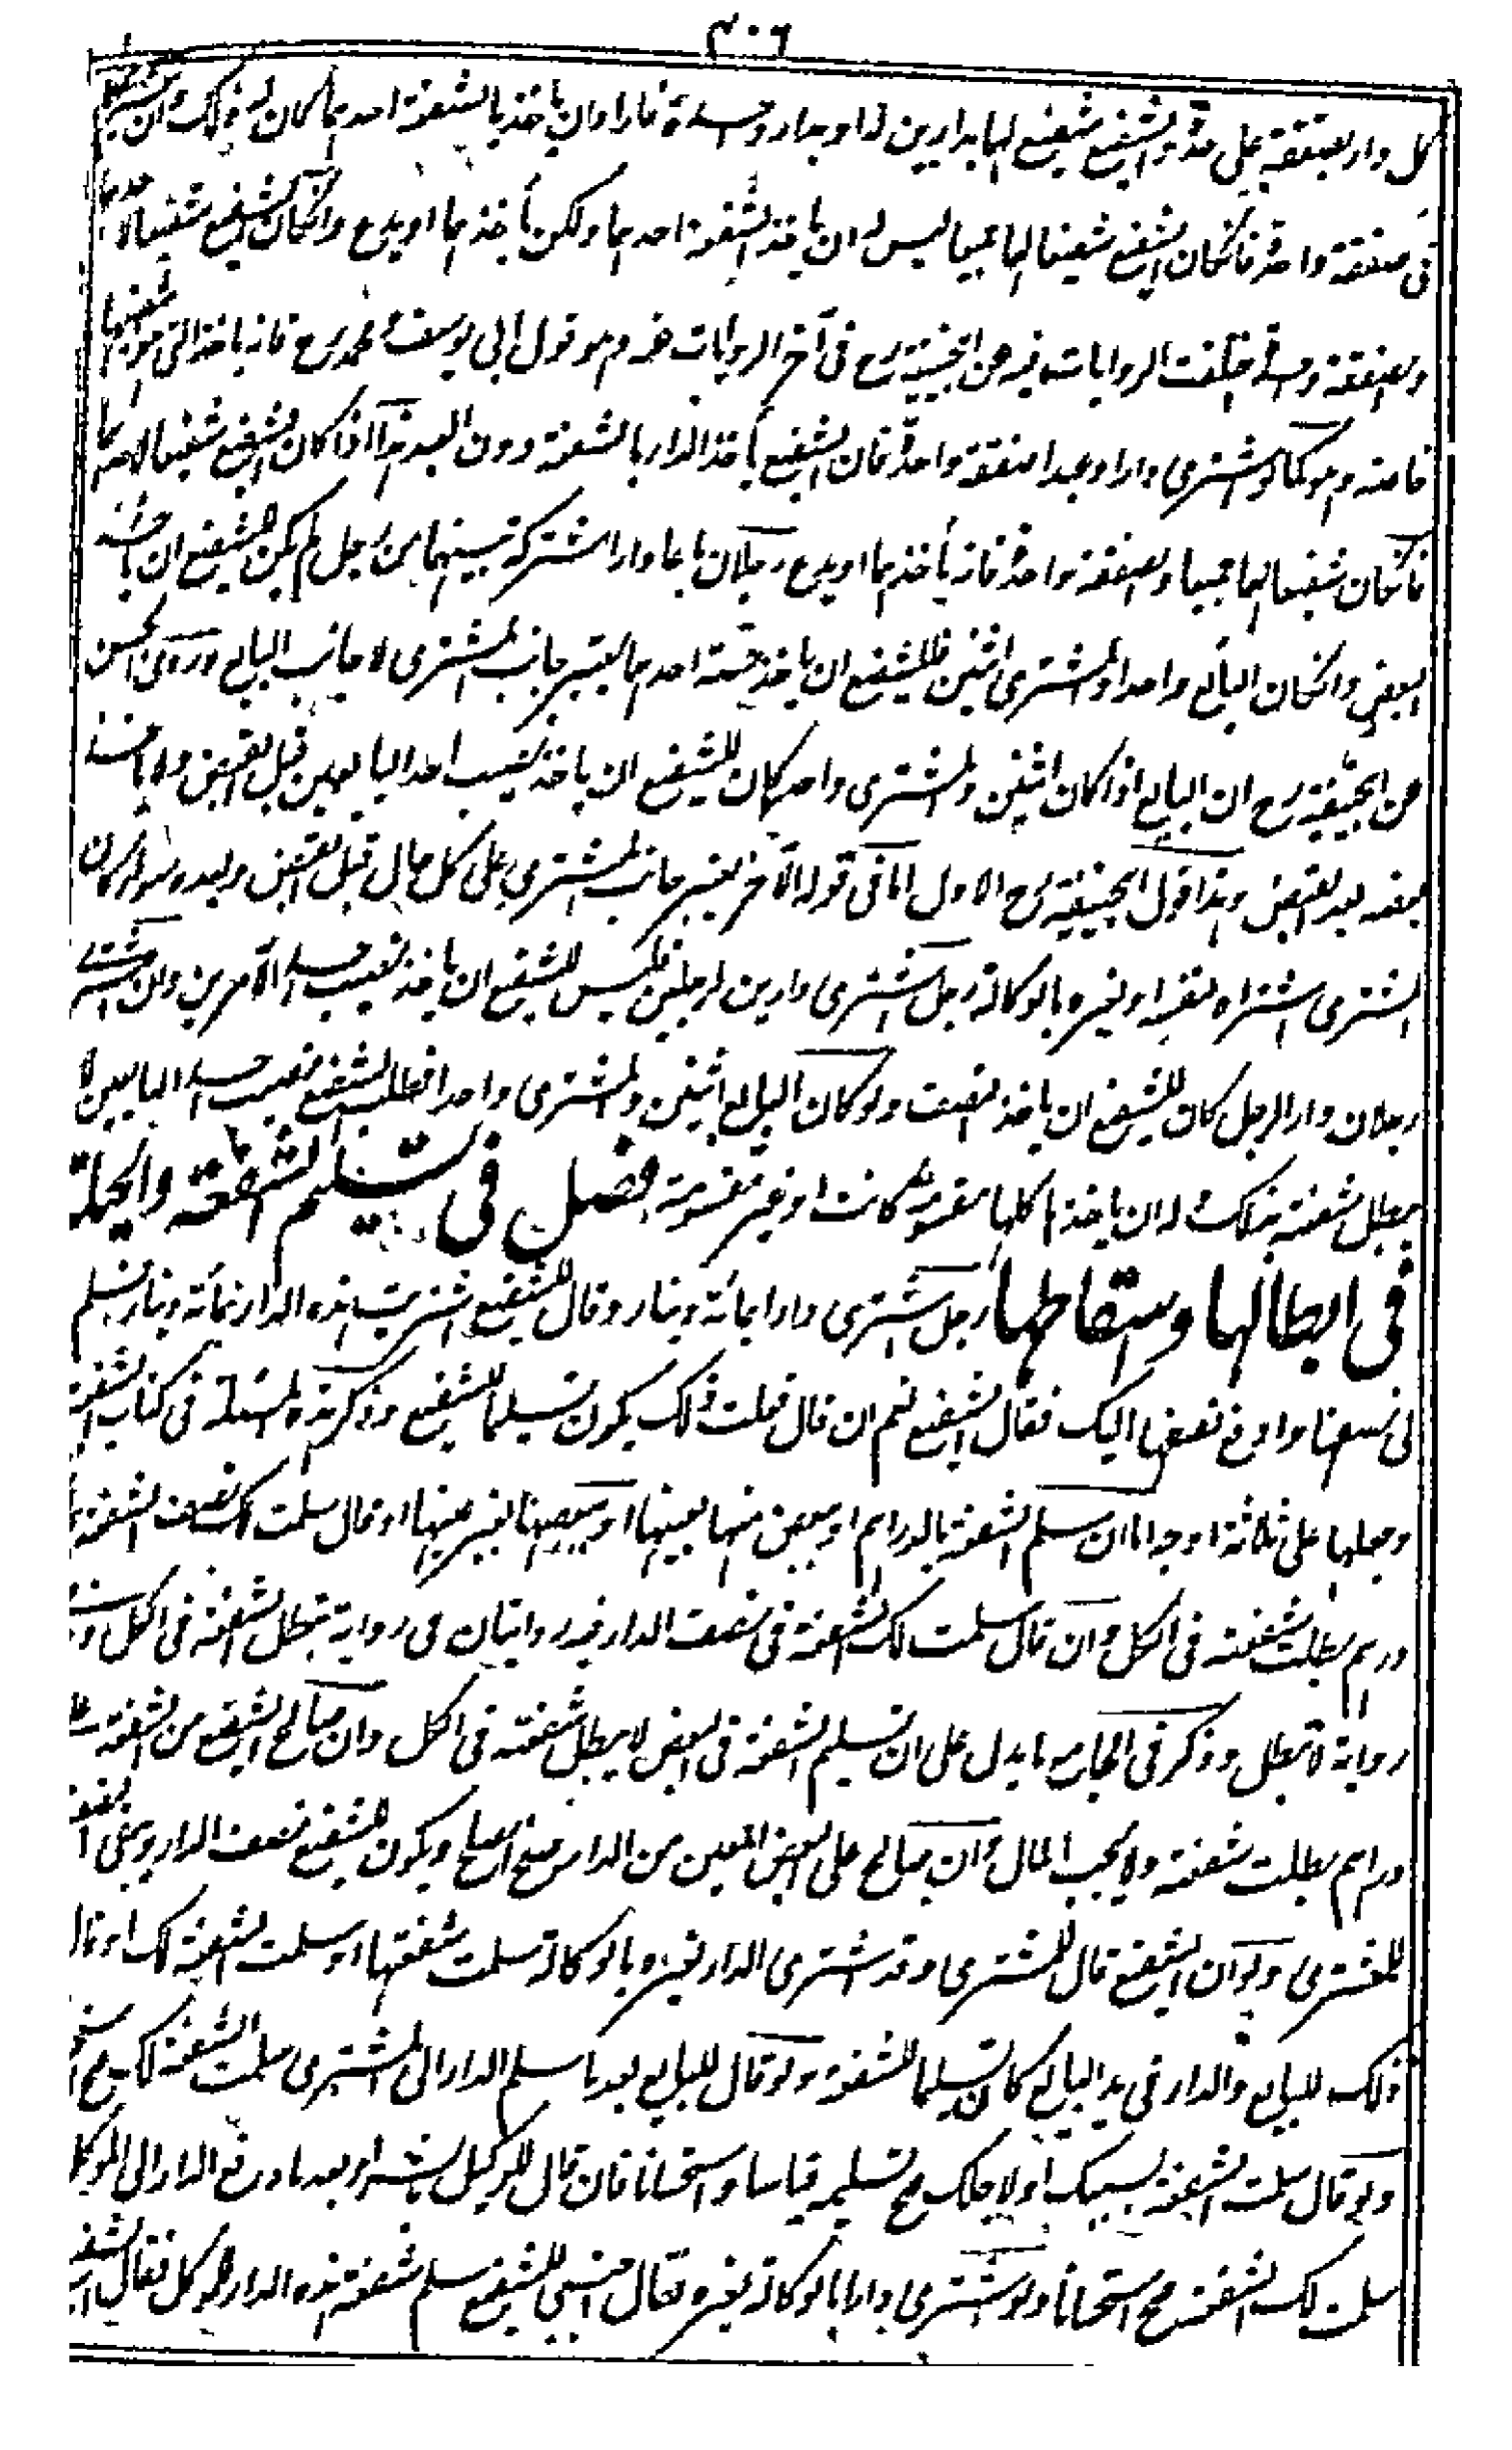 ٤٠٦
كل دار بصفقة على حدة والشفيع شفيع لهما بدارين له او بدار واحدة فاراد ان ياخذ بالشفعة احدهما كان له ذلك وان اشترى
فى صفقة واحدة فانكان الشفيع شفيعا لهما جميعا ليس له ان ياخذ بالشفعة احدهما ولكن ياخذهما او يدع وانكان الشفيع شفيعا لاحدهما
والصفقة واحدة اختلفت الروايات فيه عن ابيحنيفة رح فى آخر الروايات عنه وهو قول ابى يوسف ومحمد رح فانه ياخذ التى هو شفيعها
خاصة وهو كما لو اشترى دارا وعبدا صفقة واحدة فان الشفيع ياخذ الدار بالشفعة دون العبد هذا اذا كان الشفيع شفيعا لاحدهما
فانكان شفيعا لهما جميعا والصفقة واحدة فانه ياخذهما او يدع رجلان باعا دارا مشتركة بينهما من رجل لم يكن للشفيع ان ياخذ
البعض وانكان البائع واحدا والمشترى اثنين فللشفيع ان ياخذ حصة احدهما يعتبر جانب المشترى لا جانب البايع وروى الحسن
عن ابيحنيفة رح ان البايع اذا كان اثنين والمشترى واحد كان للشفيع ان ياخذ نصيب احد البايعين قبل القبض ولا ياخذ
بعضه بعد القبض وهذا قول ابيحنيفة رح الاول اما فى قوله الآخر يعتبر جانب المشترى على كل حال قبل القبض وبعده سواء كان
المشترى اشتراه لنفسه او لغيره بالوكالة رجل اشترى دارين لرجلين فليس للشفيع ان ياخذ نصيب احد الآمرين ولو اشترى
رجلان دار الرجل كان للشفيع ان ياخذ نصيب ولو كان البايع اثنين والمشترى واحدا فطلب الشفيع نصيب احد البايعين لا
يبطل شفعته بذلك وله ان ياخذها كلها مقسومة كانت او غير مقسومة فصل فى تسليم الشفعة والحيلة
فى ابطالها واسقاطها رجل اشترى دارا بمائة دينار وقال للشفيع اشتريت هذه الدار بمائة دينار فسلم
لى نصفها وادفع نصفها اليك فقال الشفيع نعم ان قال فعلت ذلك يكون تسليما للشفيع وذكر هذه المسئلة فى كتاب الشفعة
وجعلها على ثلاثة اوجه اما ان سلم الشفعة بالدراهم او ببعض منها بعينها او ببعضها بغير عينها او قال سلمت لك نصف الشفعة
درهم بطلت شفعته فى الكل وان قال سلمت لك الشفعة فى نصف الدار فيه روايتان فى رواية تبطل الشفعة فى الكل وفى
رواية لا تبطل وذكر فى الجامع ما يدل على ان تسليم الشفعة فى البعض لا يبطل شفعته فى الكل وان صالح الشفيع من الشفعة على
دراهم بطلت شفعته ولا يجب المال وان صالح على البعض المعين من الدار صح الصلح ويكون للشفيع نصف الدار ويبقى النصف
للمشترى ولو ان الشفيع قال للمشترى وقد اشترى الدار لغيره بالوكالة سلمت شفعتها او سلمت الشفعة لك او قال
ذلك للبايع والدار فى يد البايع كان تسليما للشفعة ولو قال للبايع بعد ما سلم الدار الى المشترى سلمت الشفعة لك صح
ولو قال سلمت الشفعة بسببك او لاجلك صح تسليمه قياسا واستحسانا فان قال للوكيل بالشراء بعد ما دفع الدار الى الموكل
سلمت لك الشفعة صح استحسانا ولو اشترى دارا بالوكالة لغيره فقال اجنبى للشفيع سلم شفعة هذه الدار للموكل فقال الشفيع